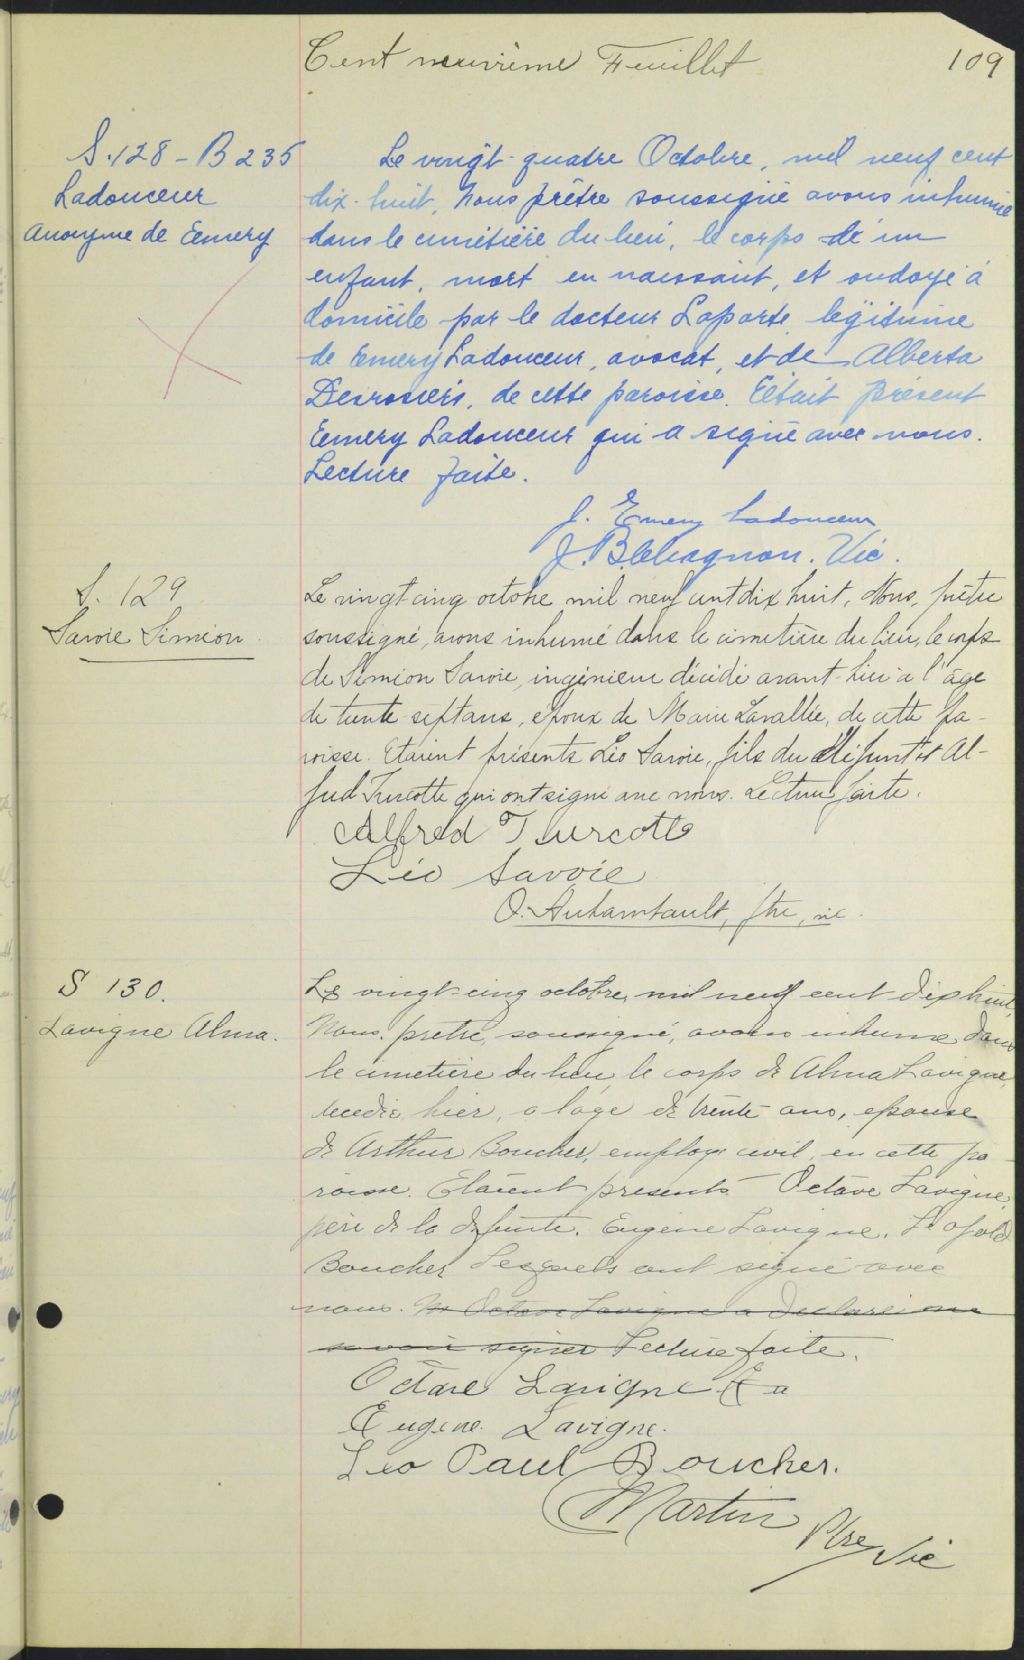 Cent neuvième Feuillet 109
S. 128 - B 235
Ladouceur
Anonyme de Emery
Le vingt-quatre Octobre, mil neuf cent
dix-huit, Nous prêtre soussigné avons inhumé
dans le cimetière du lieu, le corps de un
enfant, mort en naissant, et ondoyé à
domicile par le docteur Laporte, légitime
de Emery Ladouceur, avocat, et de Alberta
Desrosiers, de cette paroisse. Était présent
Emery Ladouceur qui a signé avec nous.
Lecture faite.
J. Emery Ladouceur
J. B. Vic.
S. 129
Savoie Simion.
Le vingt cinq octobre mil neuf cent dix huit, Nous, prêtre
soussigné, avons inhumé dans le cimetière du lieu, le corps
de Simion Savoie, ingénieur décédé avant-hier à l'âge
de trente-sept ans, époux de Marie Lavallée, de cette pa-
roisse. Étaient présents Léo Savoie, fils du défunt et Al-
fred Turcotte qui ont signé avec nous. Lecture faite.
Alfred Turcotte
Léo Savoie
O. Archambault, ptre, vic.
S 130.
Lavigne Alma.
Le vingt-cinq octobre, mil neuf cent dix huit,
Nous, prêtre, soussigné, avons inhumé dans
le cimetière du lieu, le corps de Alma Lavigne,
décédée hier, a l'age de trente ans, epouse
de Arthur Boucher, employé civil, en cette pa
roisse. Étaient presents Octave Lavigne,
père de la defunte, Eugène Lavigne, Leopold
Boucher, Lesquels ont signé avec
nous. Octave Lavigne a declaré ne
savoir signer Lecture faite.
Octave Lavigne
Eugene Lavigne.
Leo Paul Boucher.
Martin Ptre Vic